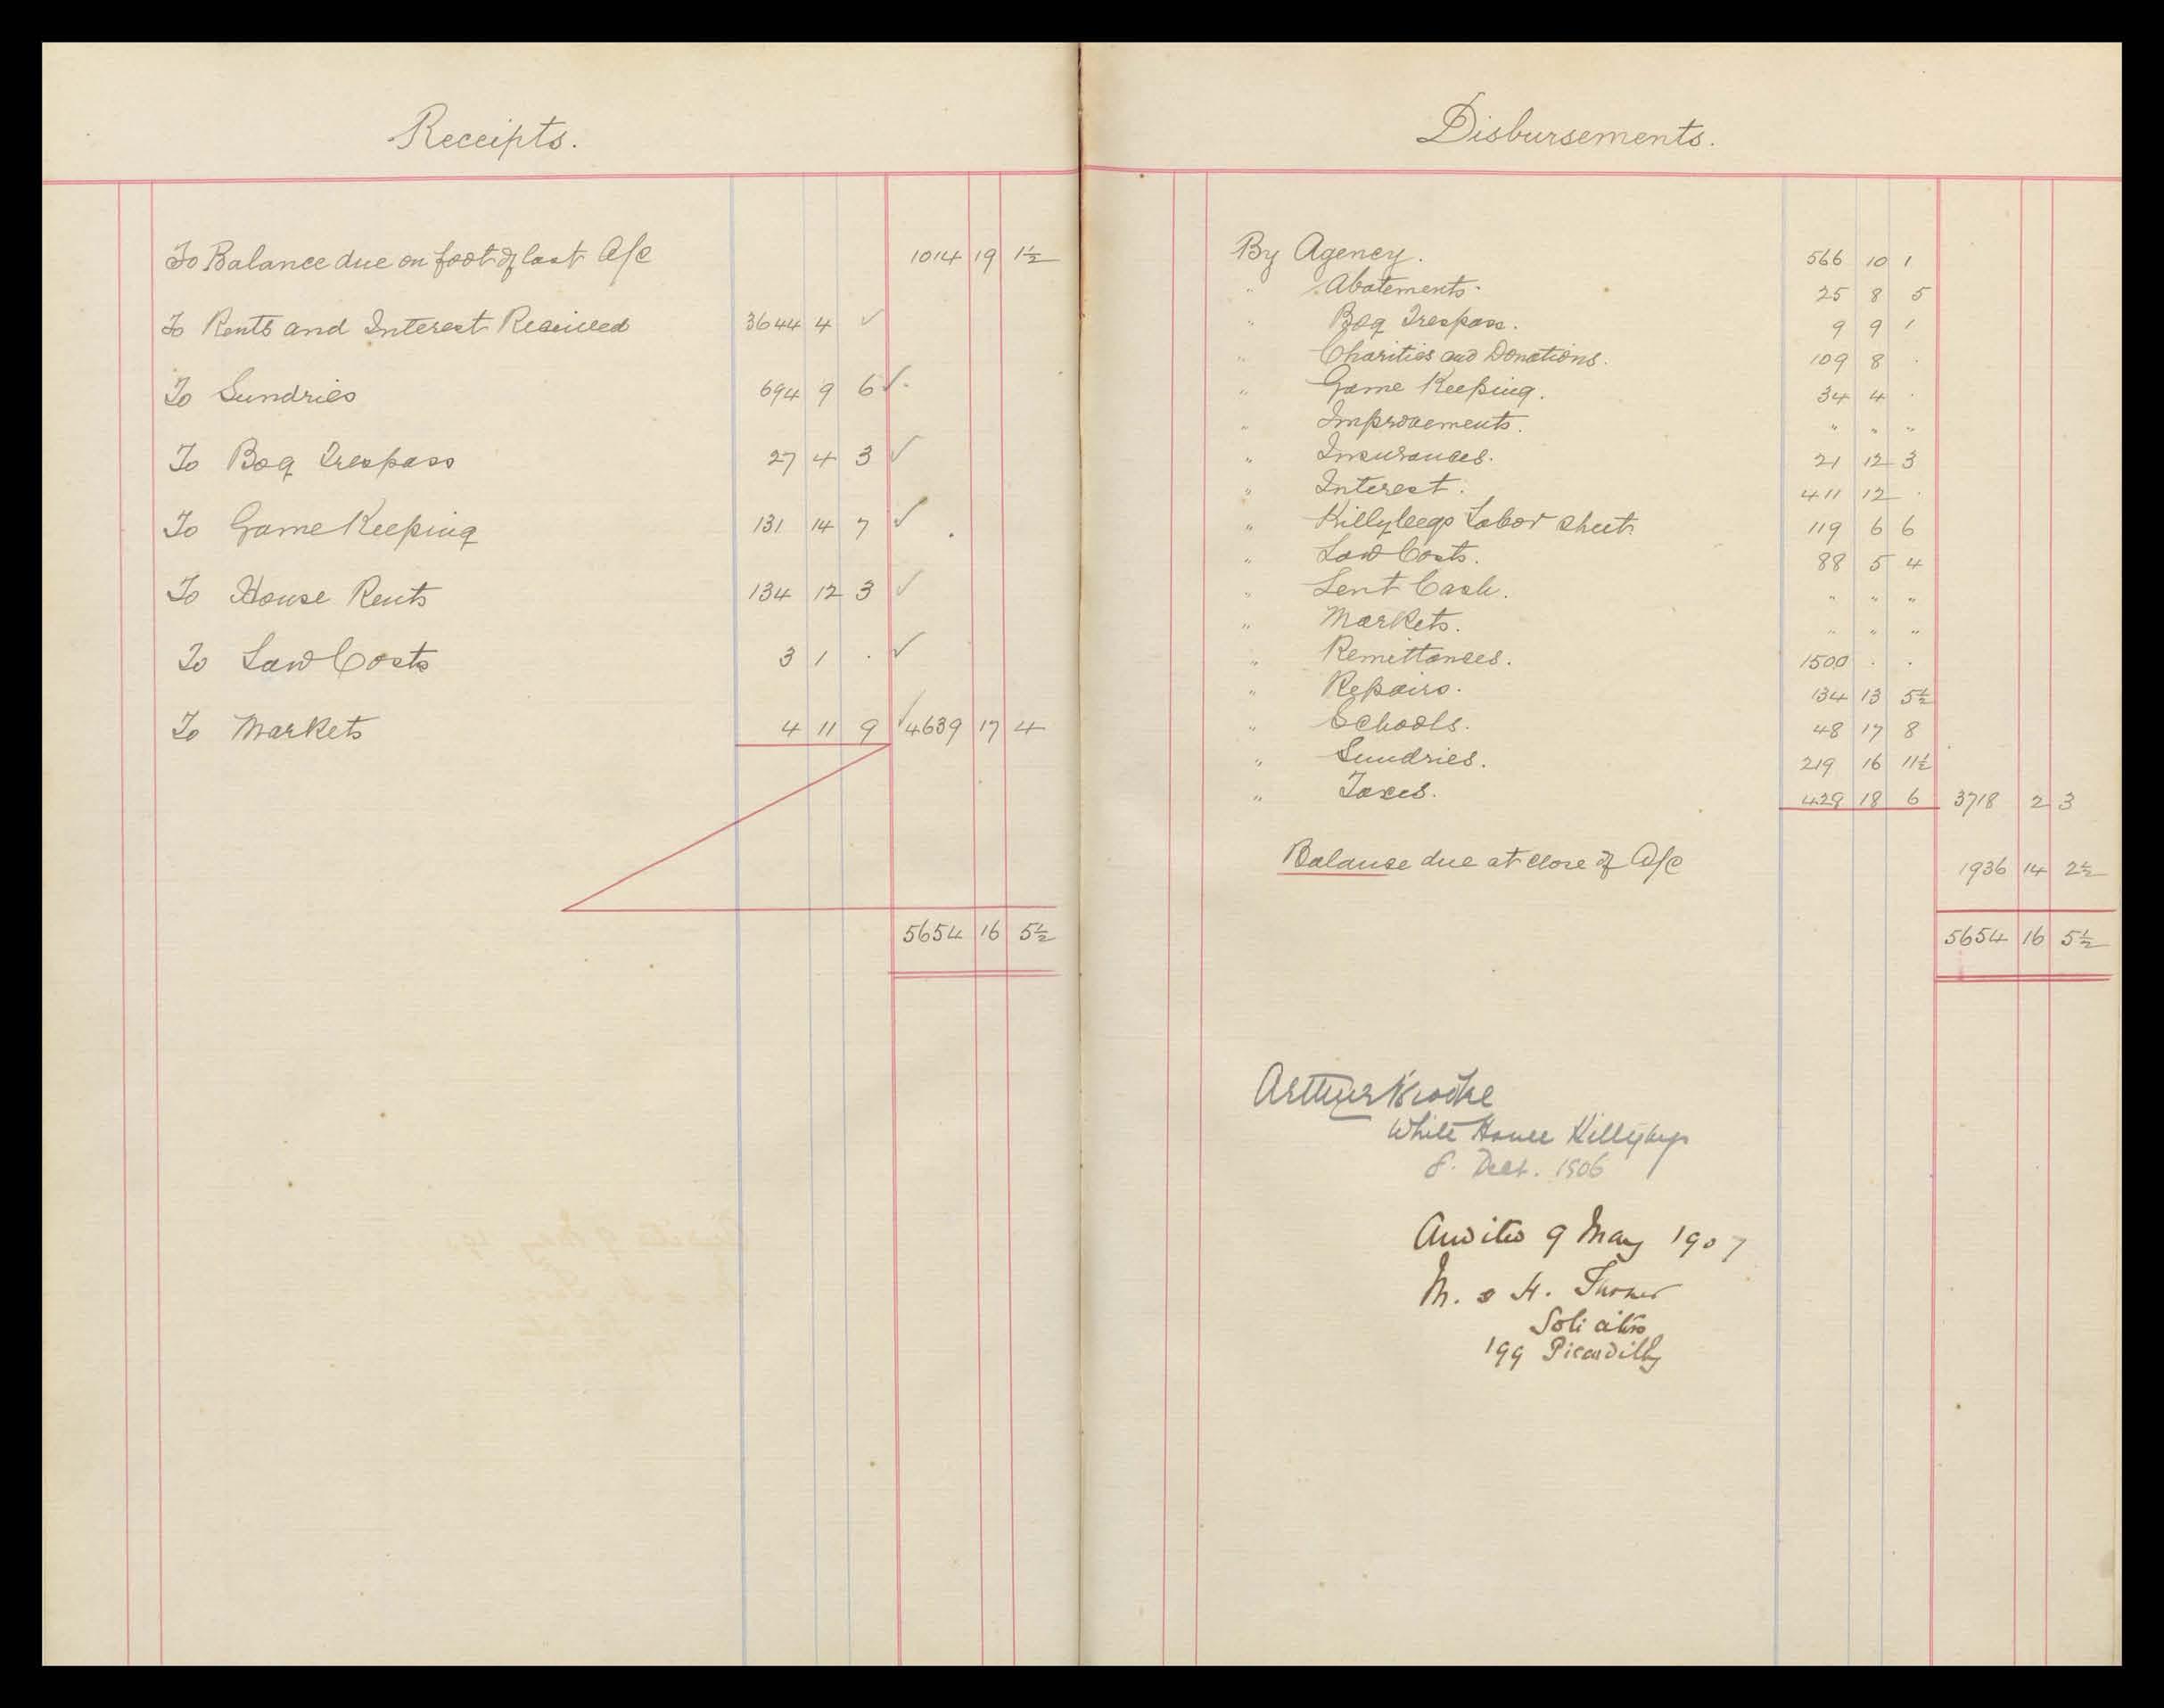 Receipts.
To Balance due on foot of last A/c 1014 19 1½
To Rents and Interest Received 3644 4 ✓
To Sundries 694 9 6 ✓
To Bog Trespass 27 4 3 ✓
To Game Keeping 131 14 7 ✓
To House Rents 134 12 3 ✓
To Law Costs 3 1 . ✓
To Markets 4 11 9 ✓ 4639 17 4
5654 16 5½
Disbursements.
By Agency. 566 10 1
" Abatements. 25 8 5
" Bog Trespass. 9 9 1
" Charities and Donations. 109 8 .
" Game Keeping. 34 4 .
" Improvements. " " "
" Insurances. 21 12 3
" Interest. 411 12 .
" Killybegs Labor Sheet. 119 6 6
" Law Costs. 88 5 4
" Lent Cash. " " "
" Markets. " " "
" Remittances. 1500 . .
" Repairs. 134 13 5½
" Schools. 48 17 8
" Sundries. 219 16 11½
" Taxes. 429 18 6 3718 2 3
Balance due at close of A/c 1936 14 2½
5654 16 5½
Arthur Brooke
White House Killybegs
8. Decr. 1906
Audited 9 May 1907
M. & H. Turner
Solicitors
199 Piccadilly